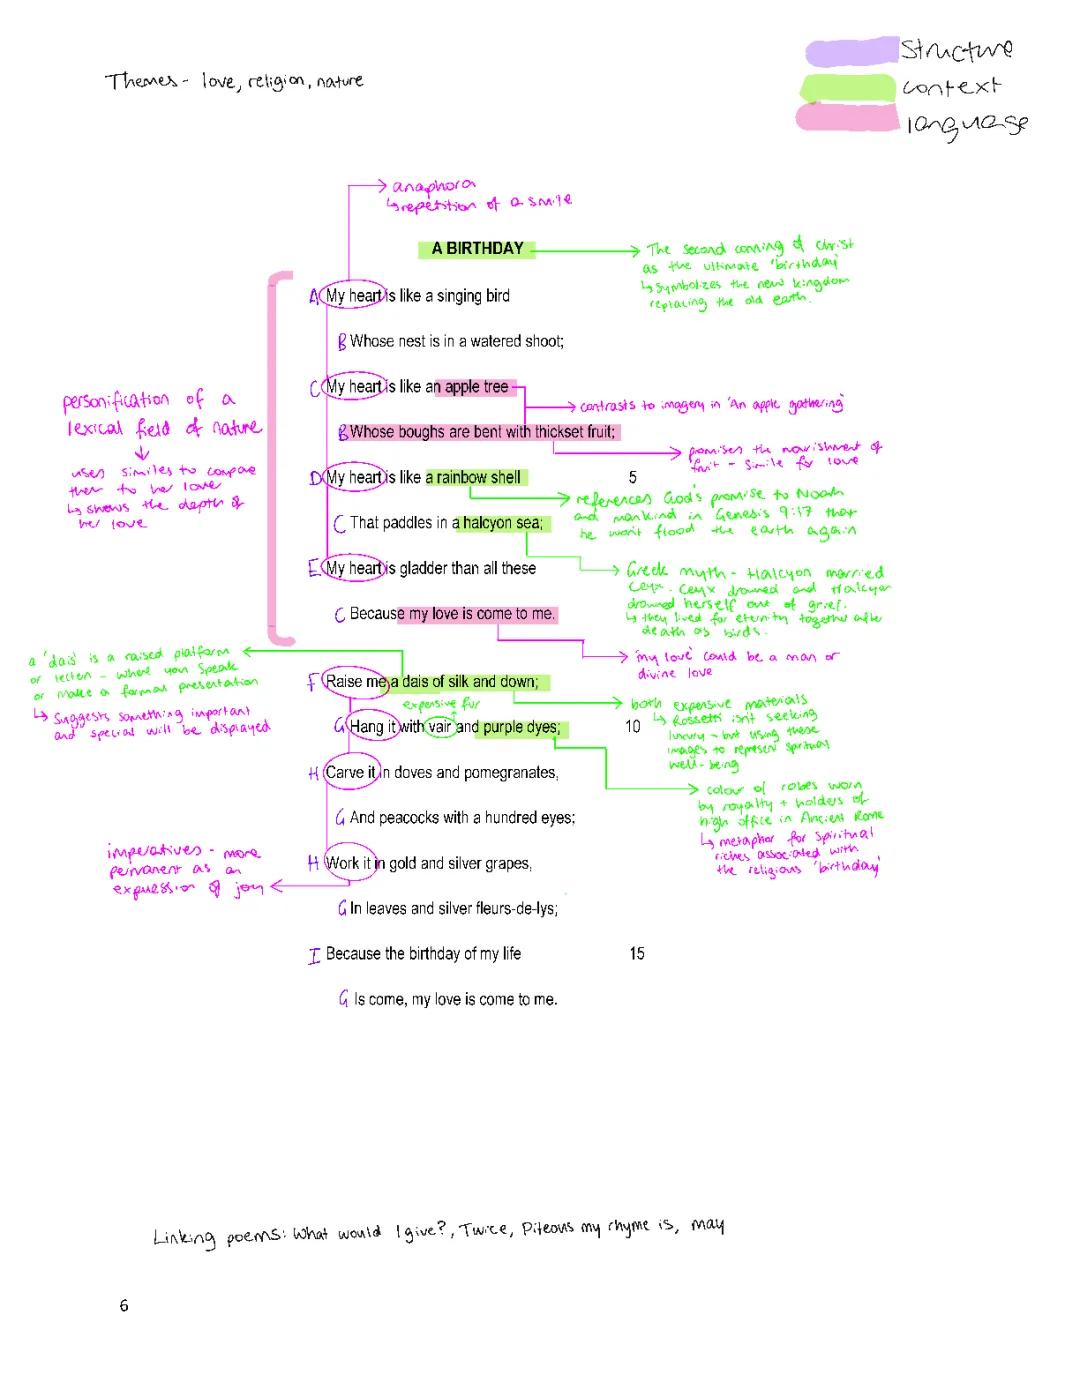 Themes - love, religion, nature
Structure
context
language
anaphora
↳repetition of a smile
A BIRTHDAY
The second coming of christ
as the ultimate 'birthday'
↳symbolizes the new kingdom
replacing the old earth.
A My heart is like a singing bird
B Whose nest is in a watered shoot;
C My heart is like an apple tree
contrasts to imagery in 'An apple gathering'
B Whose boughs are bent with thickset fruit;
promises the nourishment of
fruit - simile for love
personification of a
lexical field of nature
uses similes to compare
them to her love
↳ shows the depth of
her love
D My heart is like a rainbow shell 5
references God's promise to Noah
and mankind in Genesis 9:17 that
he won't flood the earth again
C That paddles in a halcyon sea;
E My heart is gladder than all these
Greek myth - Halcyon married
Ceyx. Ceyx drowned and Halcyon
drowned herself out of grief.
↳ they lived for eternity together after
death as birds.
C Because my love is come to me.
'my love' could be a man or
divine love
a 'dais' is a raised platform
or lecten - where you speak
or make a formal presentation
↳ Suggests something important
and special will be displayed
F Raise me a dais of silk and down;
expensive fur
both expensive materials
↳ Rossetti isn't seeking
luxury - but using these
images to represent spiritual
well-being
G Hang it with vair and purple dyes; 10
colour of robes worn
by royalty + holders of
high office in Ancient Rome
↳ metaphor for spiritual
riches associated with
the religious 'birthday'
H Carve it in doves and pomegranates,
G And peacocks with a hundred eyes;
imperatives - more
permanent as an
expression of joy
H Work it in gold and silver grapes,
G In leaves and silver fleurs-de-lys;
I Because the birthday of my life 15
G Is come, my love is come to me.
Linking poems: What would I give?, Twice, Piteous my rhyme is, may
6